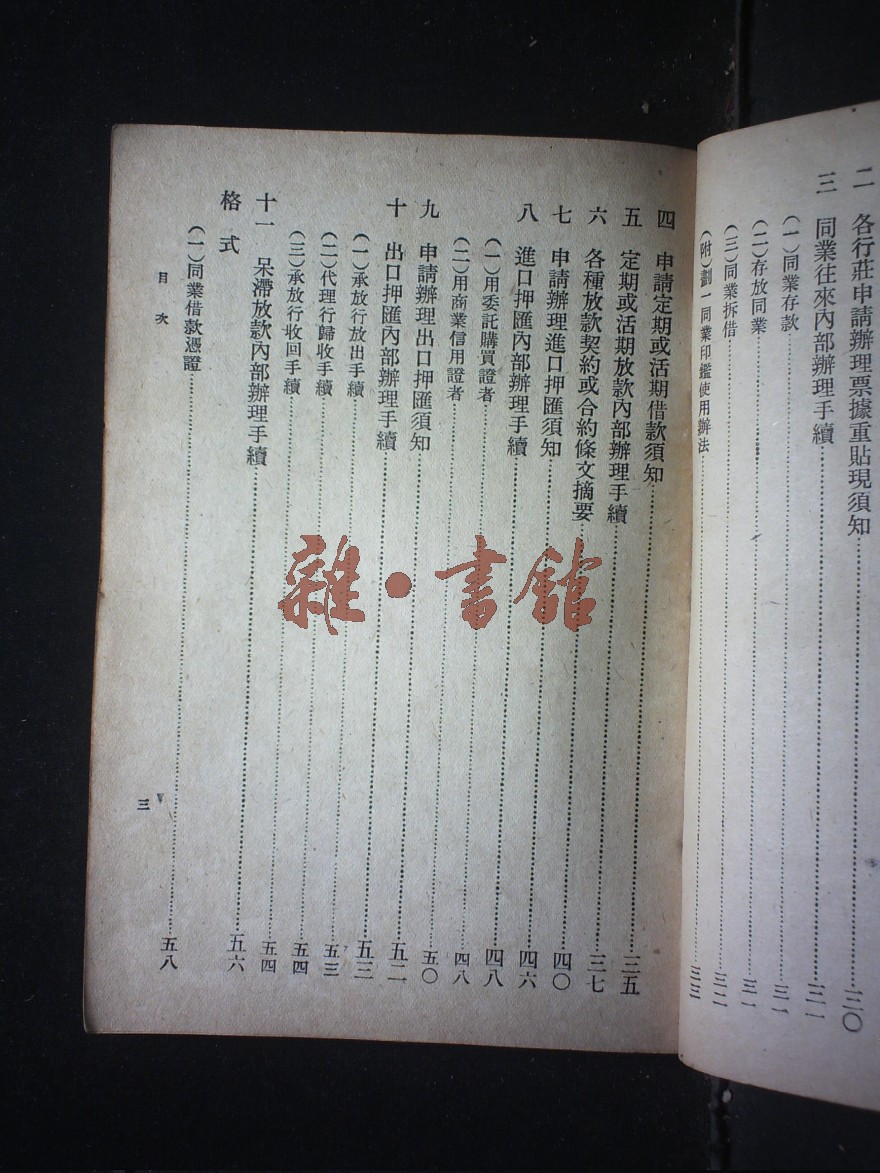 二　各行莊申請辦理票據重貼現須知………三〇
三　同業往來內部辦理手續………三一
（一）同業存款………三一
（二）存放同業………三一
（三）同業拆借………三二
（附）劃一同業印鑑使用辦法………三三
四　申請定期或活期借款須知………三五
五　定期或活期放款內部辦理手續………三七
六　各種放款契約或合約條文摘要………四〇
七　申請辦理進口押匯須知………四六
八　進口押匯內部辦理手續………四八
（一）用委託購買證者………四八
（二）用商業信用證者………五〇
九　申請辦理出口押匯須知………五二
十　出口押匯內部辦理手續………五三
（一）承放行放出手續………五三
（二）代理行歸收手續………五四
（三）承放行收回手續………五四
十一　呆滯放款內部辦理手續………五六
格式
（一）同業借款憑證………五八
目次
三
雜·書館